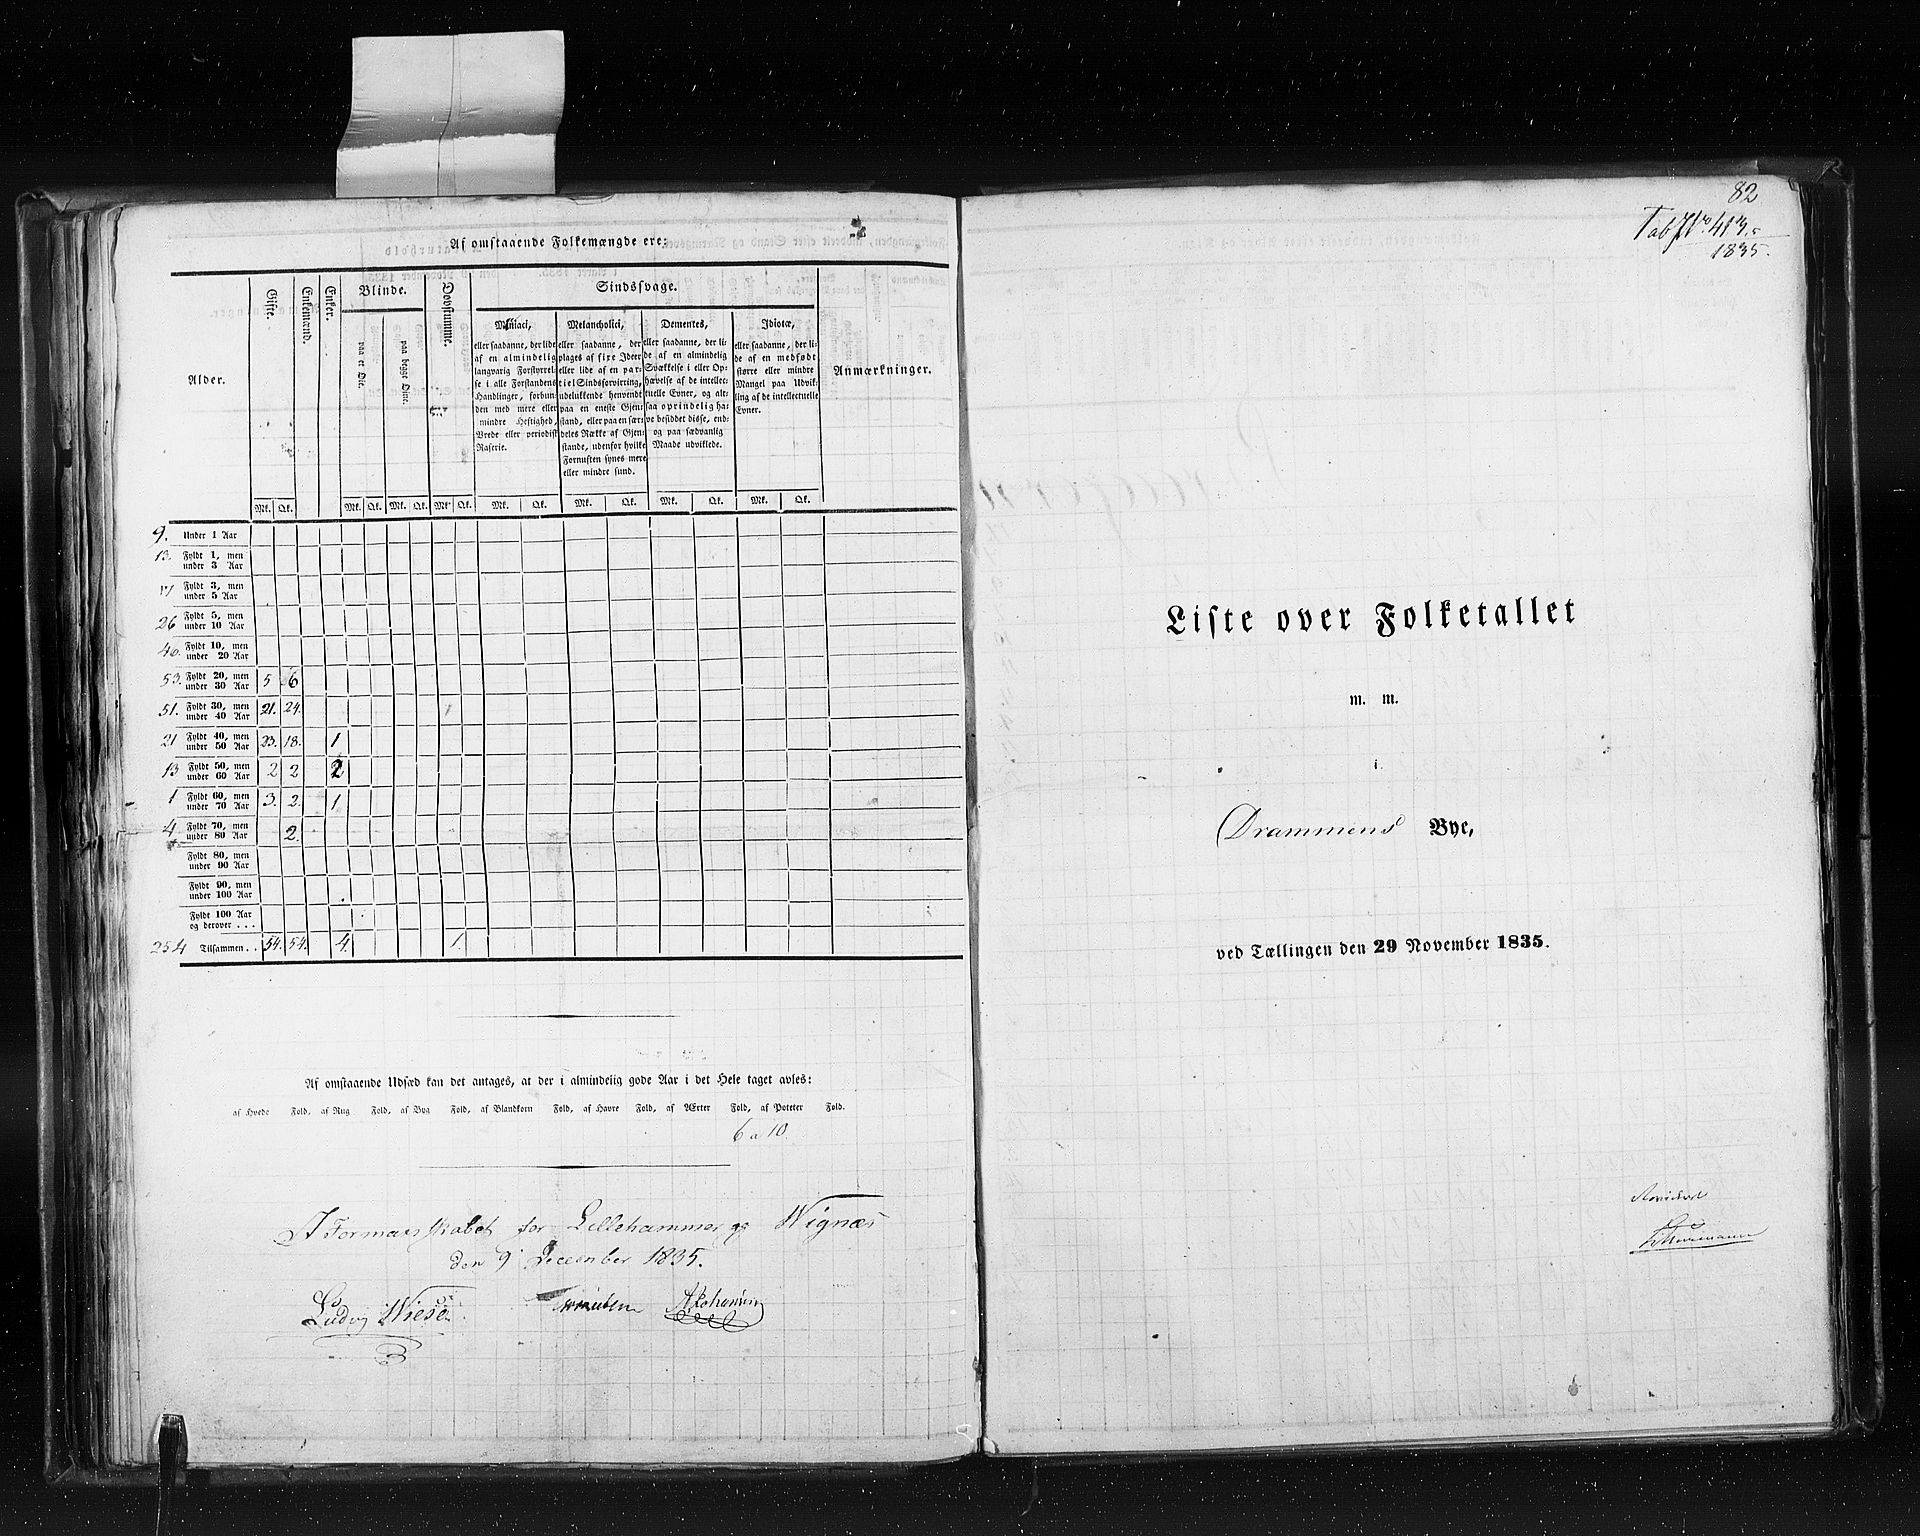 Af omstaaende Folkemængde ere:
Alder. Gifte. Enkemænd. Enker. Blinde. Dovstumme. Sindssvage. Anmærkninger.
paa et Øie. paa begge Øine.
Maniaci,
eller saadanne, der lide
af en almindelig
langvarig Forstyrrel-
se i alle Forstandens
Handlinger, forbun-
den med mere eller
mindre Heftighed,
Vrede eller periodisk
Raserie.
Melancholici,
eller saadanne, der
plages af fixe Ideer
eller lide af en par-
tiel Sindsforvirring,
udelukkende henvendt
paa en eneste Gjen-
stand, eller paa en sær-
deles Række af Gjen-
stande, udenfor hvilke
Fornuften synes mere
eller mindre sund.
Dementes,
eller saadanne, der li-
de af en almindelig
Svækkelse i eller Op-
hævelse af de intellec-
tuelle Evner, og alt-
saa oprindelig ha-
ve besiddet disse, end-
og paa sædvanlig
Maade udviklede.
Idiotæ,
eller saadanne, der li-
de af en medfødt
større eller mindre
Mangel paa Udvik-
ling af de intellectuelle
Evner.
Mk. Qk. Mk. Qk. Mk. Qk. Mk. Qk. Mk. Qk. Mk. Qk. Mk. Qk. Mk. Qk.
9. Under 1 Aar
13. Fyldt 1, men
under 3 Aar
17 Fyldt 3, men
under 5 Aar
26 Fyldt 5, men
under 10 Aar
46. Fyldt 10, men
under 20 Aar
53. Fyldt 20, men
under 30 Aar 5 6
51. Fyldt 30, men
under 40 Aar 21. 24. 1
21 Fyldt 40, men
under 50 Aar 23. 18. 1
13 Fyldt 50, men
under 60 Aar 2 2 2
1 Fyldt 60, men
under 70 Aar 3. 2. 1
4 Fyldt 70, men
under 80 Aar 2.
Fyldt 80, men
under 90 Aar
Fyldt 90, men
under 100 Aar
Fyldt 100 Aar
og derover . . .
254 Tilsammen . . 54. 54. 4. 1.
Af omstaaende Udsæd kan det antages, at der i almindelig gode Aar i det Hele taget avles:
af Hvede Fold, af Rug Fold, af Byg Fold, af Blandkorn Fold, af Havre Fold, af Ærter Fold, af Poteter Fold.
6 a 10.
I Formandskabet for Lillehammer og Vignæs
den 9 December 1835.
Ludvig Wiese
82
Tab No 413.
1835.
Liste over Folketallet
m. m.
i
Drammens Bye,
ved Tællingen den 29 November 1835.
Revideret